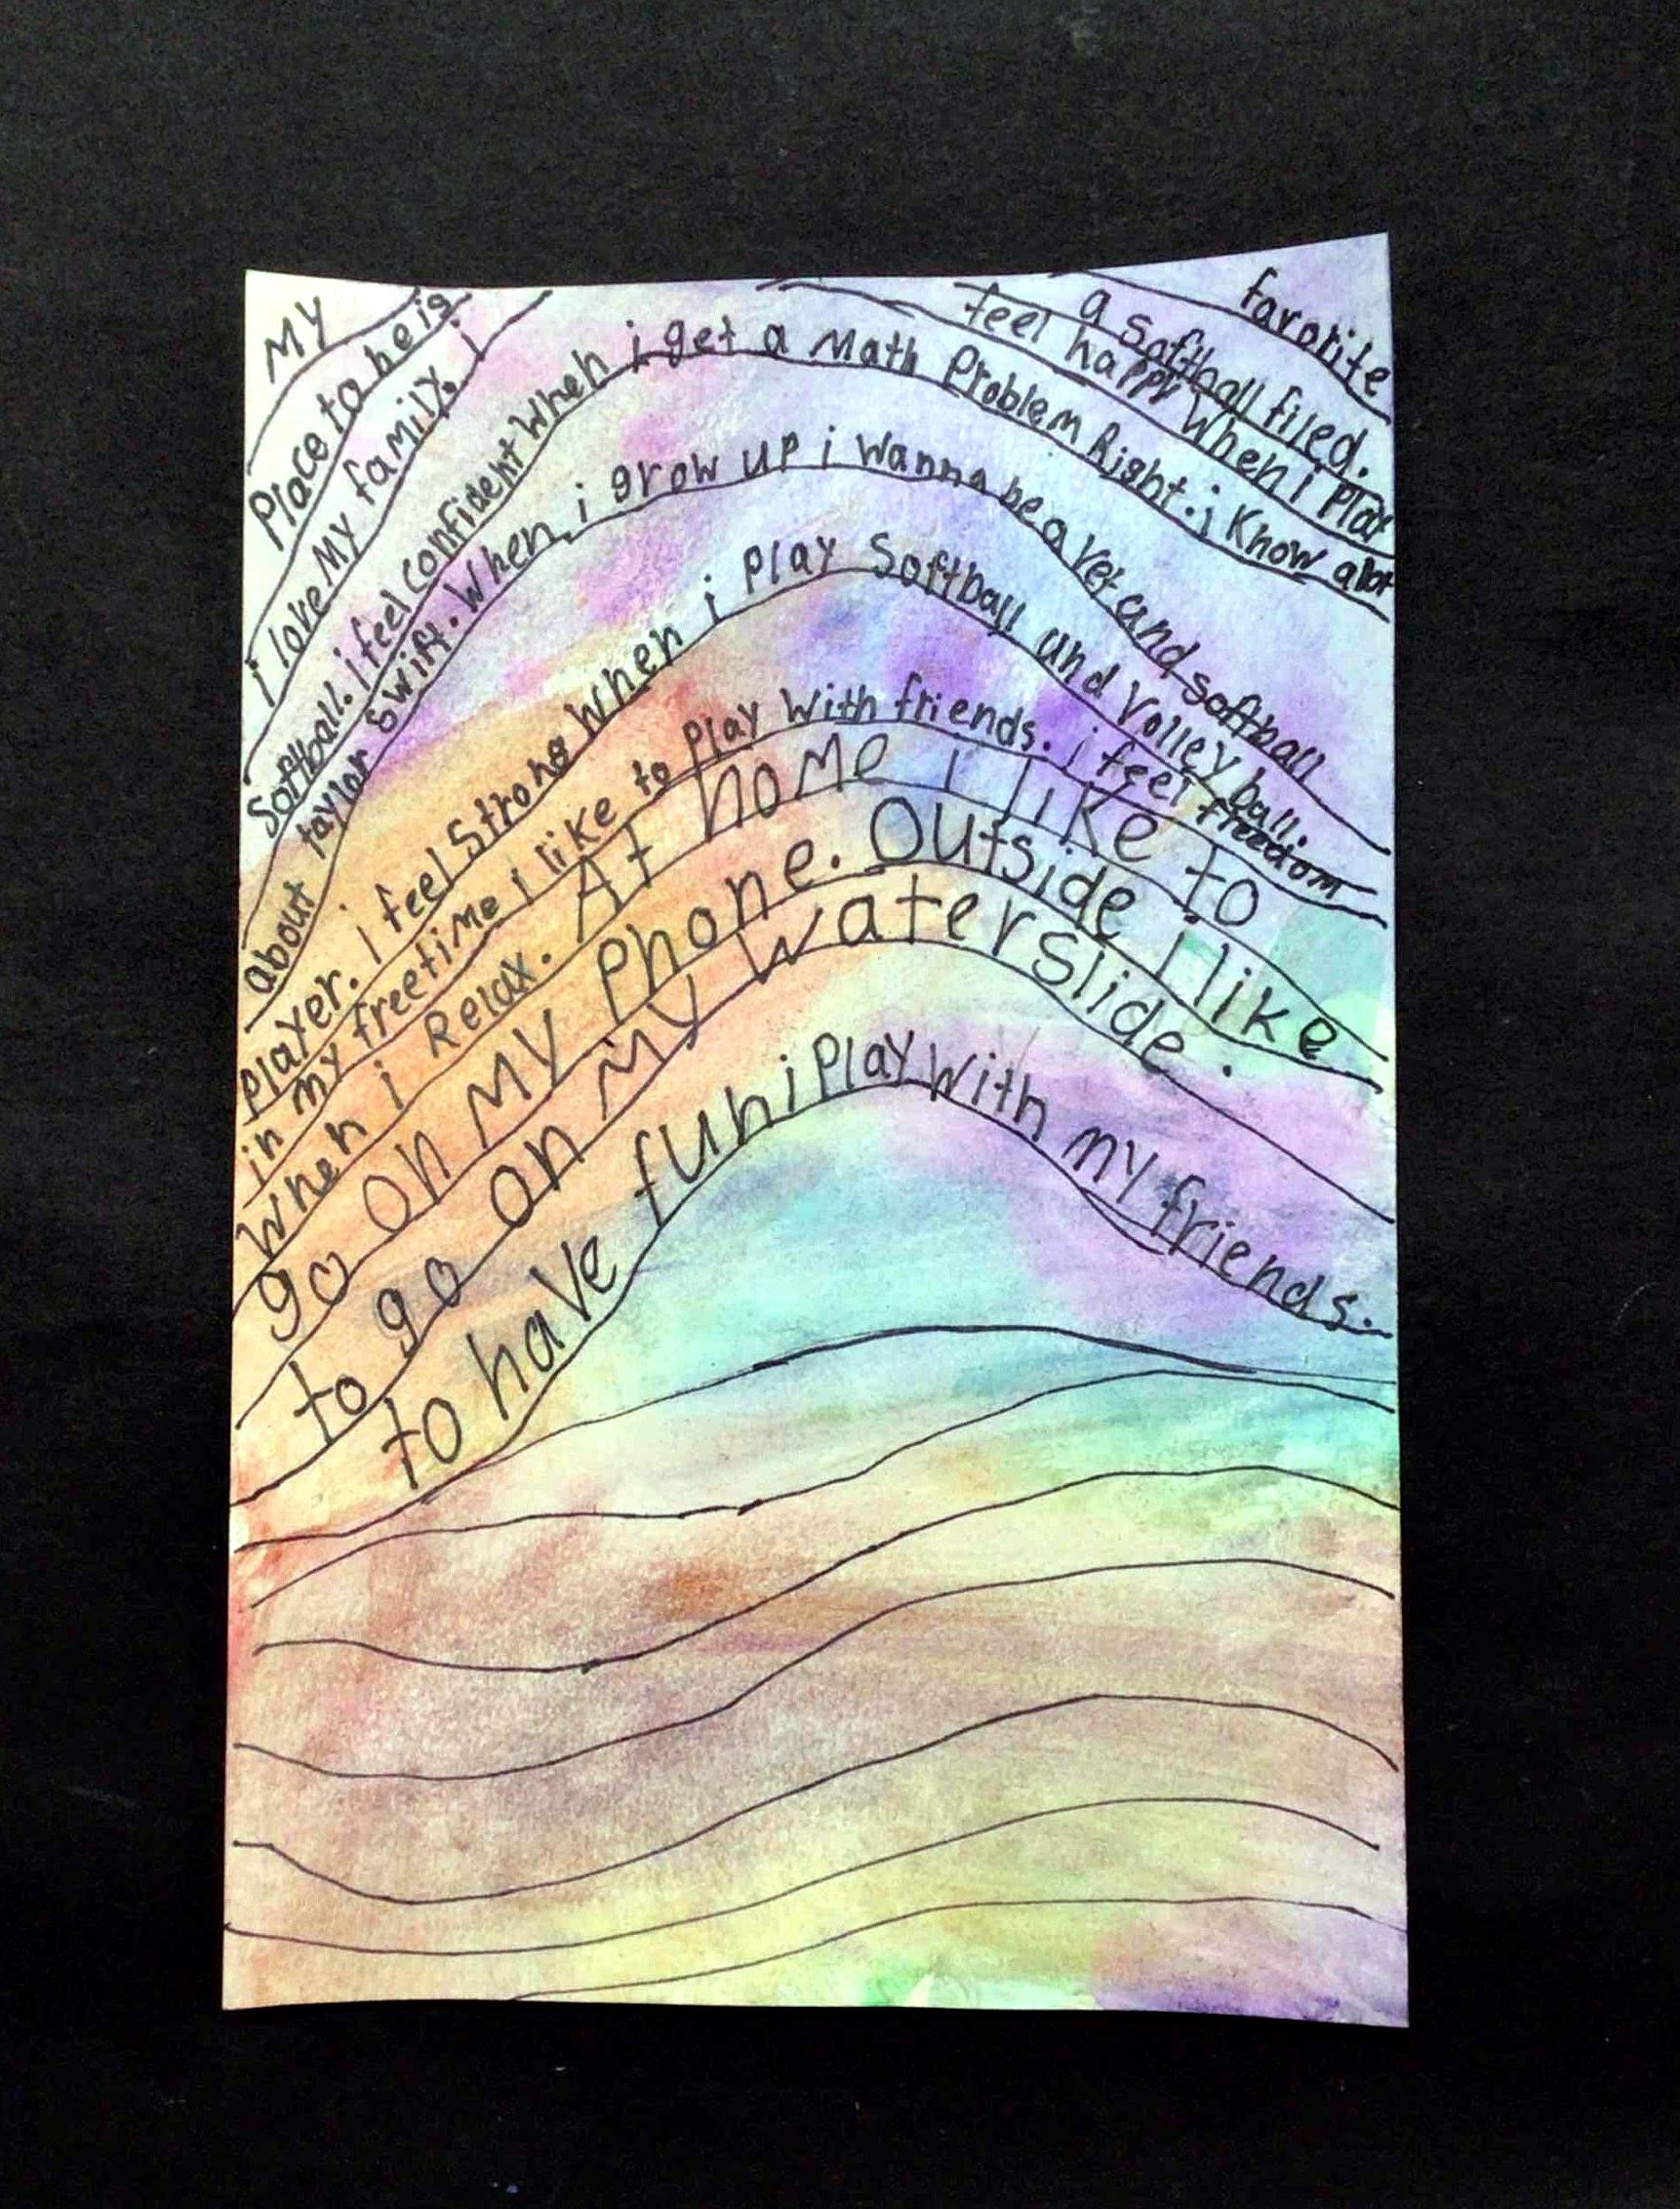 My favorite
Place to be is a softball filed.
i love My family. i feel happy When i Play
Softball. i feel confident When i get a Math Problem Right. i Know alot
about taylor swift. When i grow up i wanna be a vet and softball
Player. i feel Strong When i Play Softball and Volleyball.
in my freetime i like to Play With friends. i feel freedom
When i Relax. At home I like to
go on My Phone. Outside I like
to go on My waterslide.
to have fun i Play With my friends.